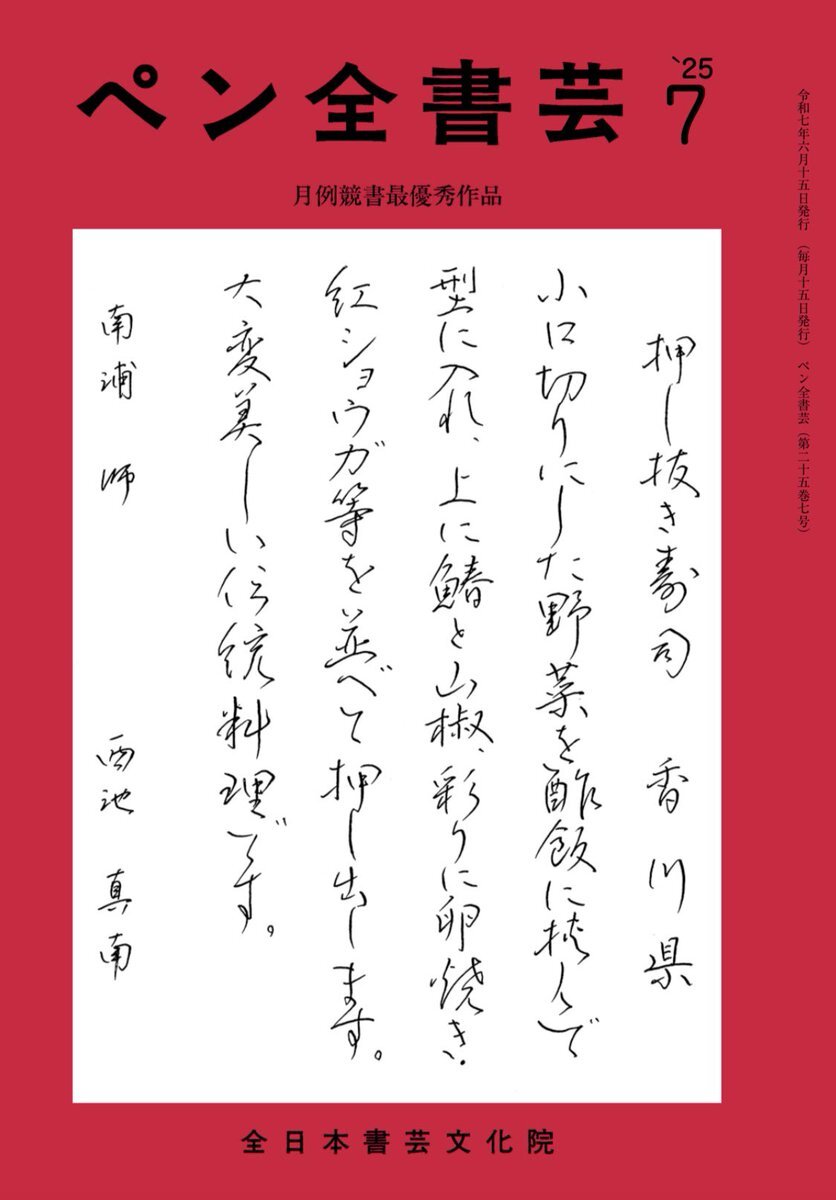 ペン全書芸
'25
7
月例競書最優秀作品
令和七年六月十五日発行 (毎月十五日発行) ペン全書芸(第二十五巻七号)
押し抜き寿司 香川県
小口切りにした野菜を酢飯に挟んで
型に入れ、上に鰆と山椒、彩りに卵焼き、
紅ショウガ等を並べて押し出します。
大変美しい伝統料理です。
南浦 師 西池 真南
全日本書芸文化院